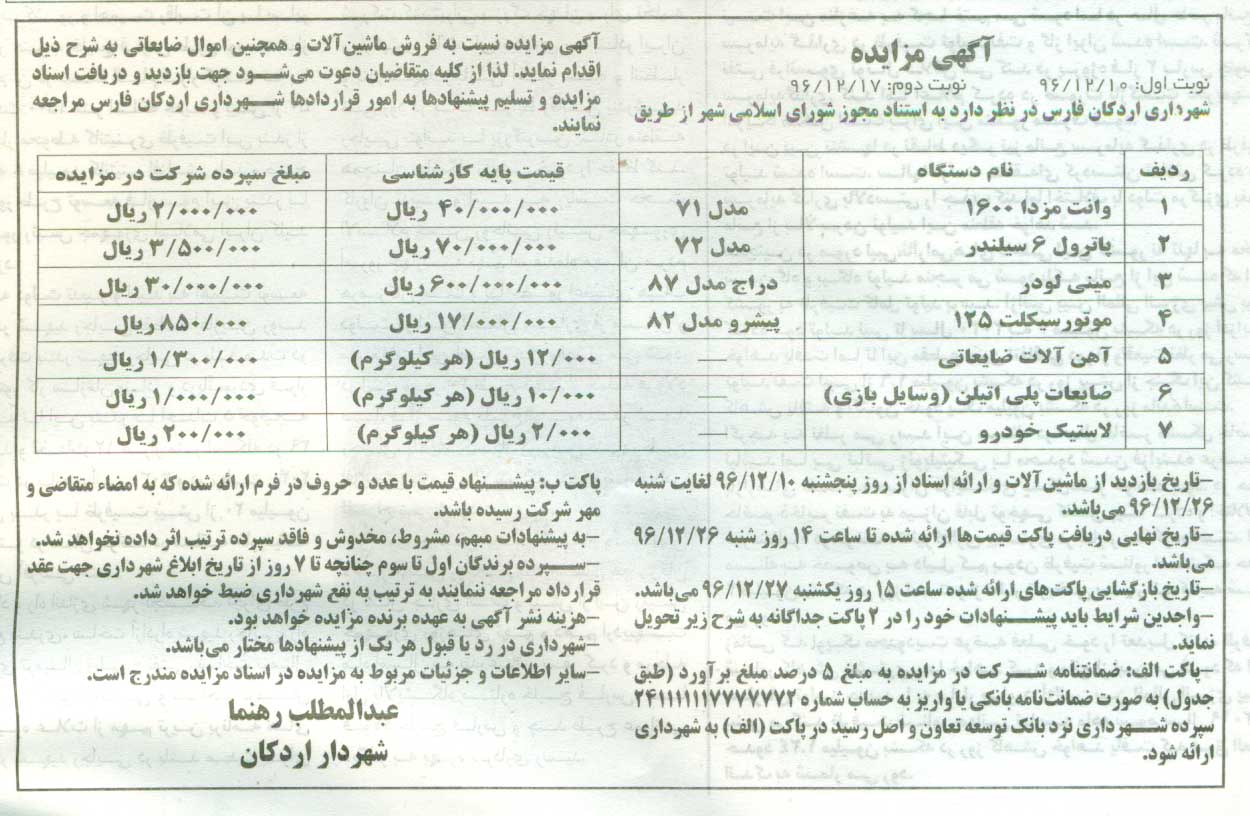 آگهی مزایده
نوبت اول: ۹۶/۱۲/۱۰ نوبت دوم: ۹۶/۱۲/۱۷
شهرداری اردکان فارس در نظر دارد به استناد مجوز شورای اسلامی شهر از طریق
آگهی مزایده نسبت به فروش ماشین‌آلات و همچنین اموال ضایعاتی به شرح ذیل
اقدام نماید. لذا از کلیه متقاضیان دعوت می‌شود جهت بازدید و دریافت اسناد
مزایده و تسلیم پیشنهادها به امور قراردادها شهرداری اردکان فارس مراجعه
نمایند.
ردیف نام دستگاه قیمت پایه کارشناسی مبلغ سپرده شرکت در مزایده
۱ وانت مزدا ۱۶۰۰ مدل ۷۱ ۴۰/۰۰۰/۰۰۰ ریال ۲/۰۰۰/۰۰۰ ریال
۲ پاترول ۶ سیلندر مدل ۷۲ ۷۰/۰۰۰/۰۰۰ ریال ۳/۵۰۰/۰۰۰ ریال
۳ مینی لودر دراج مدل ۸۷ ۶۰۰/۰۰۰/۰۰۰ ریال ۳۰/۰۰۰/۰۰۰ ریال
۴ موتورسیکلت ۱۲۵ پیشرو مدل ۸۲ ۱۷/۰۰۰/۰۰۰ ریال ۸۵۰/۰۰۰ ریال
۵ آهن آلات ضایعاتی — ۱۲/۰۰۰ ریال (هر کیلوگرم) ۱/۳۰۰/۰۰۰ ریال
۶ ضایعات پلی اتیلن (وسایل بازی) — ۱۰/۰۰۰ ریال (هر کیلوگرم) ۱/۰۰۰/۰۰۰ ریال
۷ لاستیک خودرو — ۲/۰۰۰ ریال (هر کیلوگرم) ۲۰۰/۰۰۰ ریال
–تاریخ بازدید از ماشین آلات و ارائه اسناد از روز پنجشنبه ۹۶/۱۲/۱۰ لغایت شنبه
۹۶/۱۲/۲۶ می‌باشد.
–تاریخ نهایی دریافت پاکت قیمت‌ها ارائه شده تا ساعت ۱۴ روز شنبه ۹۶/۱۲/۲۶
می‌باشد.
–تاریخ بازگشایی پاکت‌های ارائه شده ساعت ۱۵ روز یکشنبه ۹۶/۱۲/۲۷ می‌باشد.
–واجدین شرایط باید پیشنهادات خود را در ۲ پاکت جداگانه به شرح زیر تحویل
نماید.
–پاکت الف: ضمانتنامه شرکت در مزایده به مبلغ ۵ درصد مبلغ برآورد (طبق
جدول) به صورت ضمانت‌نامه بانکی یا واریز به حساب شماره ۲۴۱۱۱۱۱۱۷۷۷۷۷۷۲
سپرده شهرداری نزد بانک توسعه تعاون و اصل رسید در پاکت (الف) به شهرداری
ارائه شود.
پاکت ب: پیشنهاد قیمت با عدد و حروف در فرم ارائه شده که به امضاء متقاضی و
مهر شرکت رسیده باشد.
–به پیشنهادات مبهم، مشروط، مخدوش و فاقد سپرده ترتیب اثر داده نخواهد شد.
–سپرده برندگان اول تا سوم چنانچه تا ۷ روز از تاریخ ابلاغ شهرداری جهت عقد
قرارداد مراجعه ننمایند به ترتیب به نفع شهرداری ضبط خواهد شد.
–هزینه نشر آگهی به عهده برنده مزایده خواهد بود.
–شهرداری در رد یا قبول هر یک از پیشنهادها مختار می‌باشد.
–سایر اطلاعات و جزئیات مربوط به مزایده در اسناد مزایده مندرج است.
عبدالمطلب رهنما
شهردار اردکان